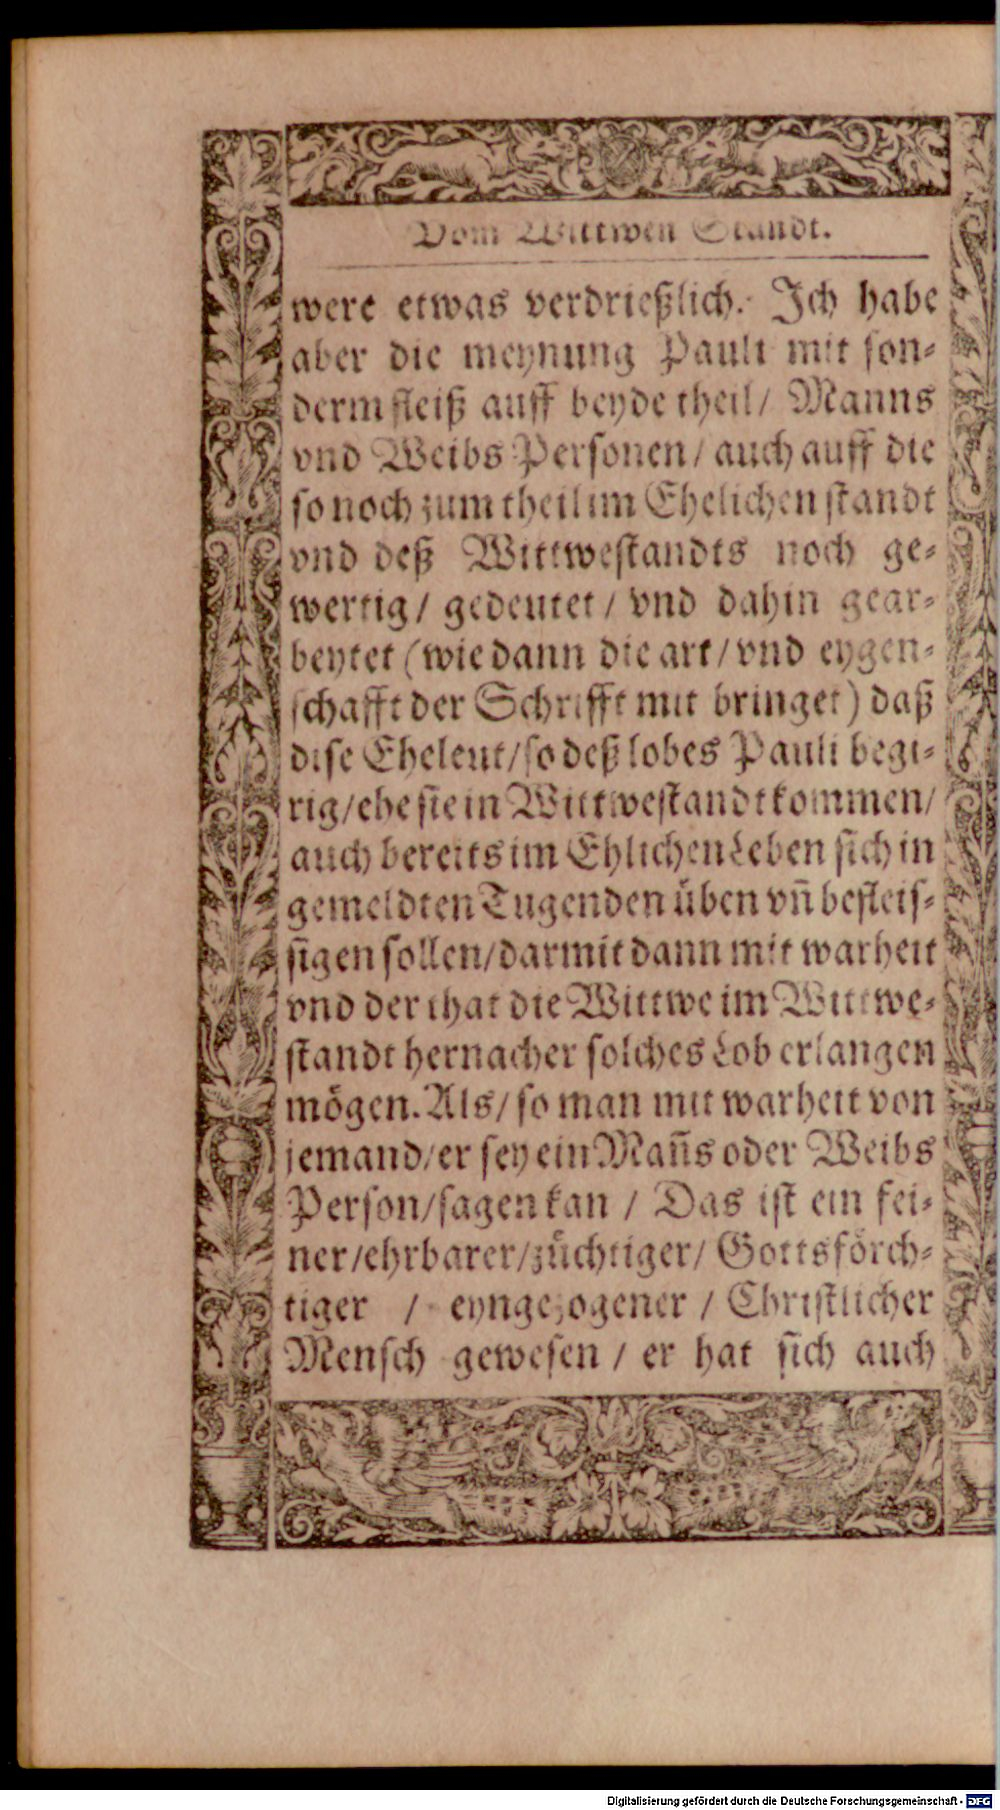 Vom Wittwen Standt.
were etwas verdrießlich. Ich habe
aber die meynung Pauli mit son⸗
derm fleiß auff beyde theil/ Manns
vnd Weibs Personen/ auch auff die
so noch zum theil im Ehelichen standt
vnd deß Wittwestandts noch ge⸗
wertig/ gedeutet/ vnd dahin gear⸗
beytet (wie dann die art/ vnd eygen⸗
schafft der Schrifft mit bringet) daß
dise Eheleut/ so deß lobes Pauli begi⸗
rig/ ehe sie in Wittwestandt kommen/
auch bereits im Ehlichen Leben sich in
gemeldten Tugenden üben vñ befleis⸗
sigen sollen/ darmit dann mit warheit
vnd der that die Wittwe im Wittwe⸗
standt hernacher solches Lob erlangen
mögen. Als/ so man mit warheit von
jemand/ er sey ein Mañs oder Weibs
Person/ sagen kan / Das ist ein fei⸗
ner/ ehrbarer/ züchtiger/ Gottsförch⸗
tiger / eyngezogener / Christlicher
Mensch gewesen / er hat sich auch
Digitalisierung gefördert durch die Deutsche Forschungsgemeinschaft - DFG